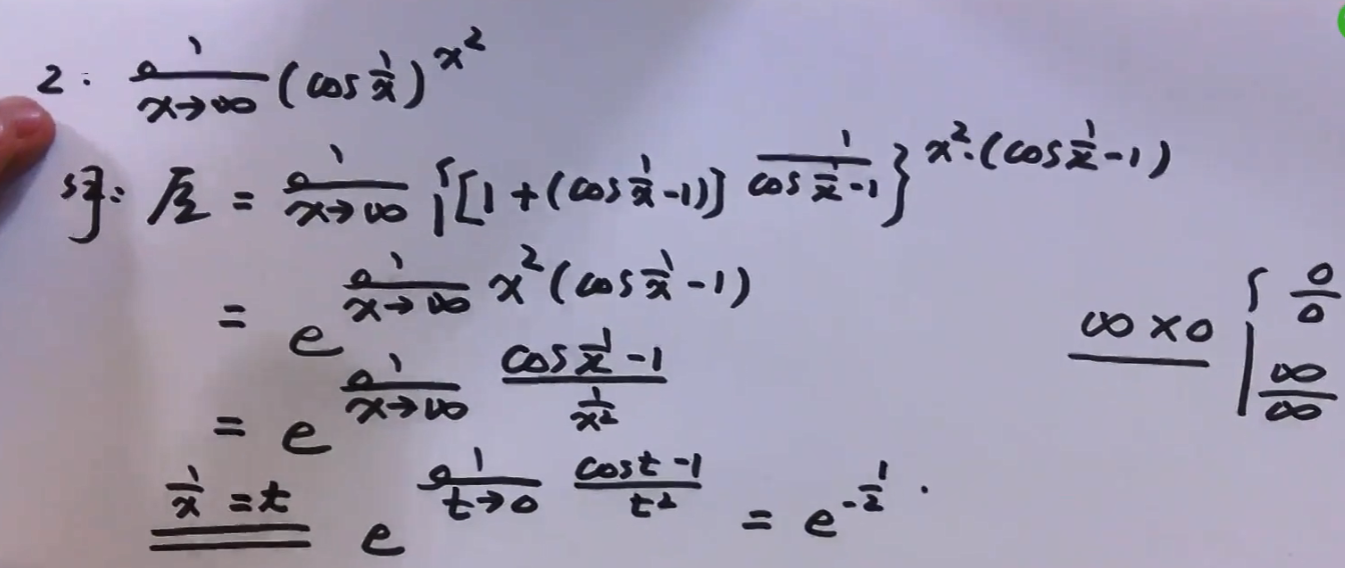 2. lim x→∞ (cos 1/x)^x²
解: 原 = lim x→∞ {[1+(cos 1/x -1)]^(1/(cos 1/x -1))}^(x²·(cos 1/x -1))
= e^(lim x→∞ x²(cos 1/x -1))
∞×0 { 0/0 ∞/∞
= e^(lim x→∞ (cos 1/x -1)/(1/x²))
1/x = t e^(lim t→0 (cost -1)/t²) = e^(-1/2).